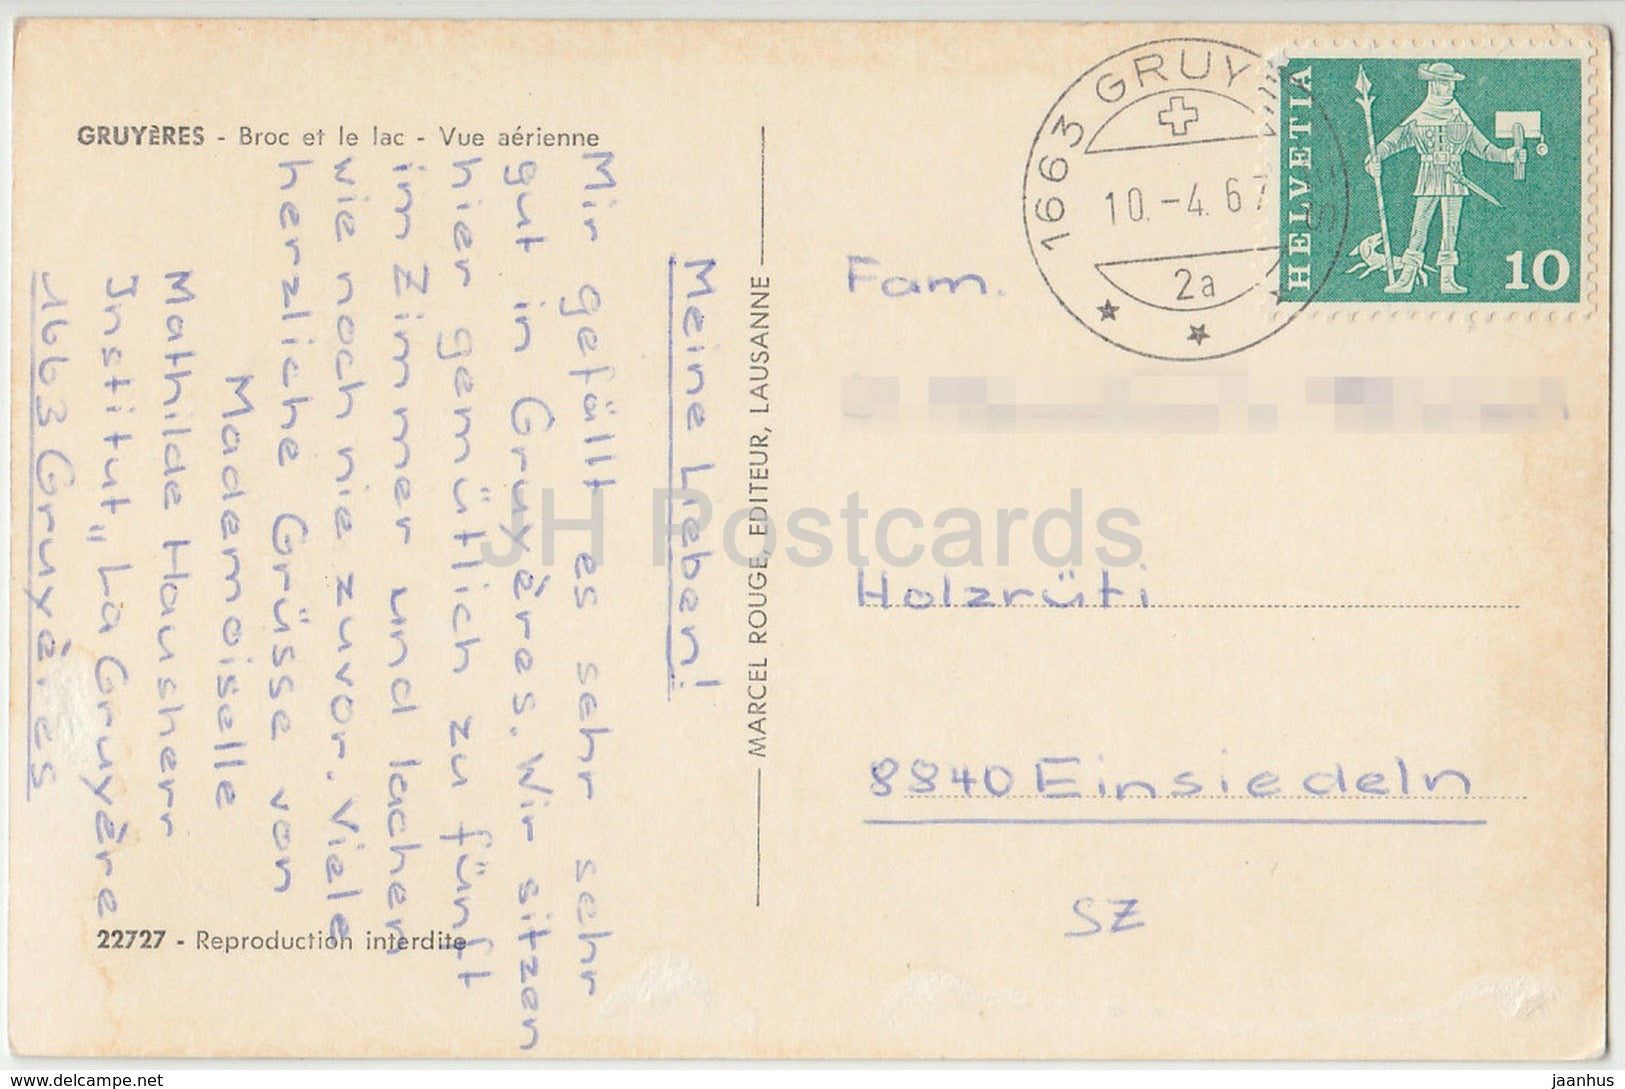 GRUYÈRES - Broc et le lac - Vue aérienne
Meine Lieben!
Mir gefällt es sehr sehr
gut in Gruyères. Wir sitzen
hier gemütlich zu fünft
im Zimmer und lachen
wie noch nie zuvor. Viele
herzliche Grüsse von
Mademoiselle
Mathilde Hausherr
Institut „La Gruyère
1663 Gruyères
22727 - Reproduction interdite
MARCEL ROUGE, EDITEUR, LAUSANNE
1663 GRUY
10.-4.67
2a
HELVETIA
10
Fam.
Holzrüti
8840 Einsiedeln
SZ
JH Postcards
www.delcampe.net
jaanhus